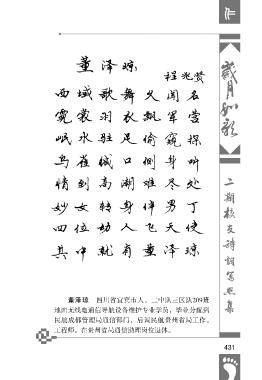 董泽琼
程兆贤
西域歌舞久闻名
霓裳羽衣飘军营
岷水驻足偷窥探
乌雀缄口侧身听
情到高潮难尽处
妙女转身伴男丁
四位功人飞天使
其中就有董泽琼
董泽琼 四川省宜宾市人，二中队三区队209班
地面无线电通信导航设备维护专业学员，毕业分配到
民航成都管理局通信部门，后调民航贵州省局工作。
工程师。在贵州省局通信助理岗位退休。
岁月如歌
二期校友诗词写照集
431